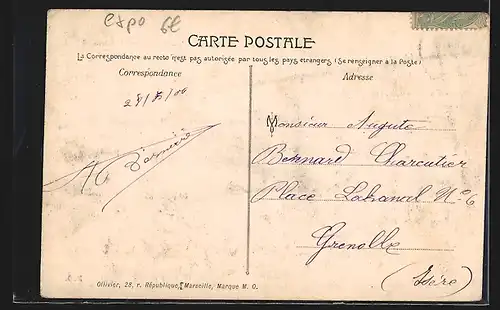 expo 6f
CARTE POSTALE
La Correspondance au recto n'est pas autorisée par tous les pays étrangers (Se renseigner à la Poste)
Correspondance
Adresse
Monsieur Auguste
Bernard Charcutier
Place Lahanal N° 6
Grenoble
(Isère)
Ollivier, 28, r. République, Marseille, Marque M. O.